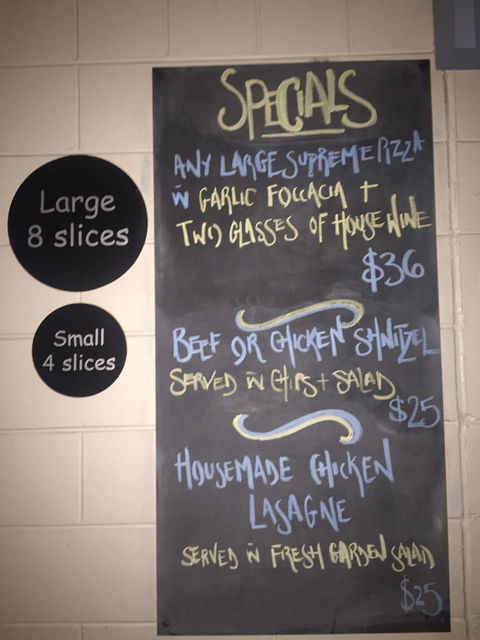 SPECIALS
ANY LARGE SUPREME PIZZA
W GARLIC FOCCACIA +
TWO GLASSES OF HOUSE WINE
$36
BEEF OR CHICKEN SHNITZEL
SERVED W CHIPS + SALAD
$25
HOUSEMADE CHICKEN
LASAGNE
SERVED W FRESH GARDEN SALAD
$25
Large
8 slices
Small
4 slices